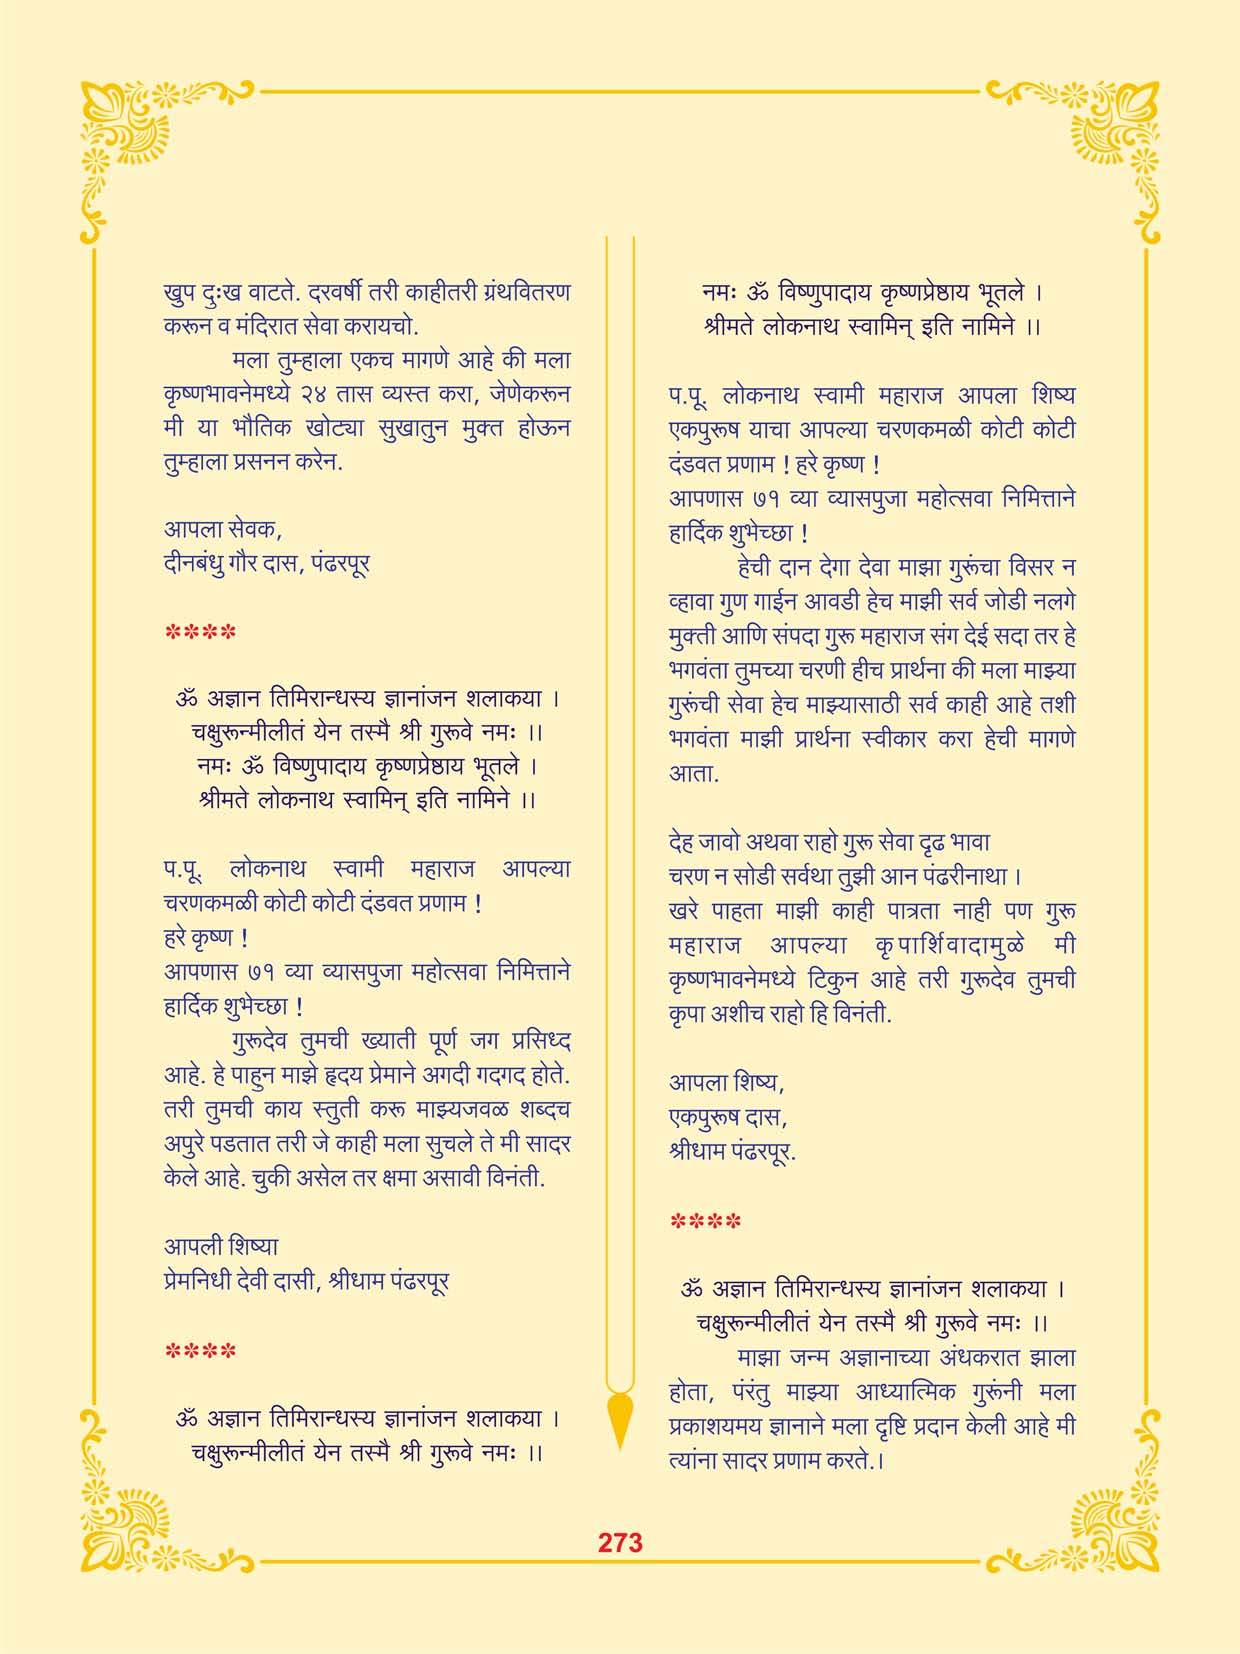 खुप दुःख वाटते. दरवर्षी तरी काहीतरी ग्रंथवितरण
करून व मंदिरात सेवा करायचो.
मला तुम्हाला एकच मागणे आहे की मला
कृष्णभावनेमध्ये २४ तास व्यस्त करा, जेणेकरून
मी या भौतिक खोट्या सुखातुन मुक्त होऊन
तुम्हाला प्रसनन करेन.
आपला सेवक,
दीनबंधु गौर दास, पंढरपूर
****
ॐ अज्ञान तिमिरान्धस्य ज्ञानांजन शलाकया ।
चक्षुरून्मीलीतं येन तस्मै श्री गुरूवे नमः ।।
नमः ॐ विष्णुपादाय कृष्णप्रेष्ठाय भूतले ।
श्रीमते लोकनाथ स्वामिन् इति नामिने ।।
प.पू. लोकनाथ स्वामी महाराज आपल्या
चरणकमळी कोटी कोटी दंडवत प्रणाम !
हरे कृष्ण !
आपणास ७१ व्या व्यासपुजा महोत्सवा निमित्ताने
हार्दिक शुभेच्छा !
गुरूदेव तुमची ख्याती पूर्ण जग प्रसिध्द
आहे. हे पाहुन माझे हृदय प्रेमाने अगदी गदगद होते.
तरी तुमची काय स्तुती करू माझ्यजवळ शब्दच
अपुरे पडतात तरी जे काही मला सुचले ते मी सादर
केले आहे. चुकी असेल तर क्षमा असावी विनंती.
आपली शिष्या
प्रेमनिधी देवी दासी, श्रीधाम पंढरपूर
****
ॐ अज्ञान तिमिरान्धस्य ज्ञानांजन शलाकया ।
चक्षुरून्मीलीतं येन तस्मै श्री गुरूवे नमः ।।
नमः ॐ विष्णुपादाय कृष्णप्रेष्ठाय भूतले ।
श्रीमते लोकनाथ स्वामिन् इति नामिने ।।
प.पू. लोकनाथ स्वामी महाराज आपला शिष्य
एकपुरूष याचा आपल्या चरणकमळी कोटी कोटी
दंडवत प्रणाम ! हरे कृष्ण !
आपणास ७१ व्या व्यासपुजा महोत्सवा निमित्ताने
हार्दिक शुभेच्छा !
हेची दान देगा देवा माझा गुरूंचा विसर न
व्हावा गुण गाईन आवडी हेच माझी सर्व जोडी नलगे
मुक्ती आणि संपदा गुरू महाराज संग देई सदा तर हे
भगवंता तुमच्या चरणी हीच प्रार्थना की मला माझ्या
गुरूंची सेवा हेच माझ्यासाठी सर्व काही आहे तशी
भगवंता माझी प्रार्थना स्वीकार करा हेची मागणे
आता.
देह जावो अथवा राहो गुरू सेवा दृढ भावा
चरण न सोडी सर्वथा तुझी आन पंढरीनाथा ।
खरे पाहता माझी काही पात्रता नाही पण गुरू
महाराज आपल्या कृपार्शिवादामुळे मी
कृष्णभावनेमध्ये टिकुन आहे तरी गुरूदेव तुमची
कृपा अशीच राहो हि विनंती.
आपला शिष्य,
एकपुरूष दास,
श्रीधाम पंढरपूर.
****
ॐ अज्ञान तिमिरान्धस्य ज्ञानांजन शलाकया ।
चक्षुरून्मीलीतं येन तस्मै श्री गुरूवे नमः ।।
माझा जन्म अज्ञानाच्या अंधकरात झाला
होता, पंरंतु माझ्या आध्यात्मिक गुरूंनी मला
प्रकाशयमय ज्ञानाने मला दृष्टि प्रदान केली आहे मी
त्यांना सादर प्रणाम करते.।
273